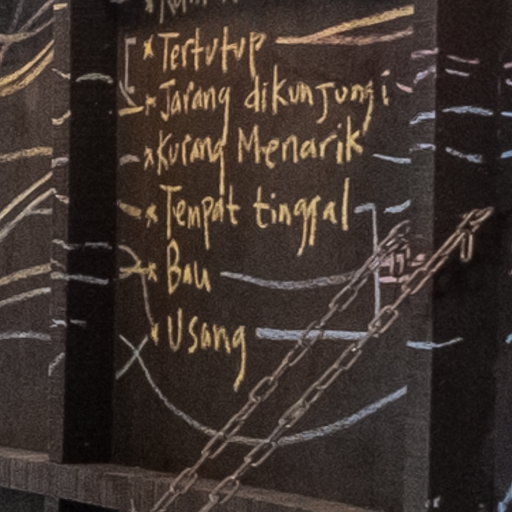 * Tertutup
* Jarang dikunjungi
* Kurang Menarik
* Tempat tinggal
* Bau
* Usang